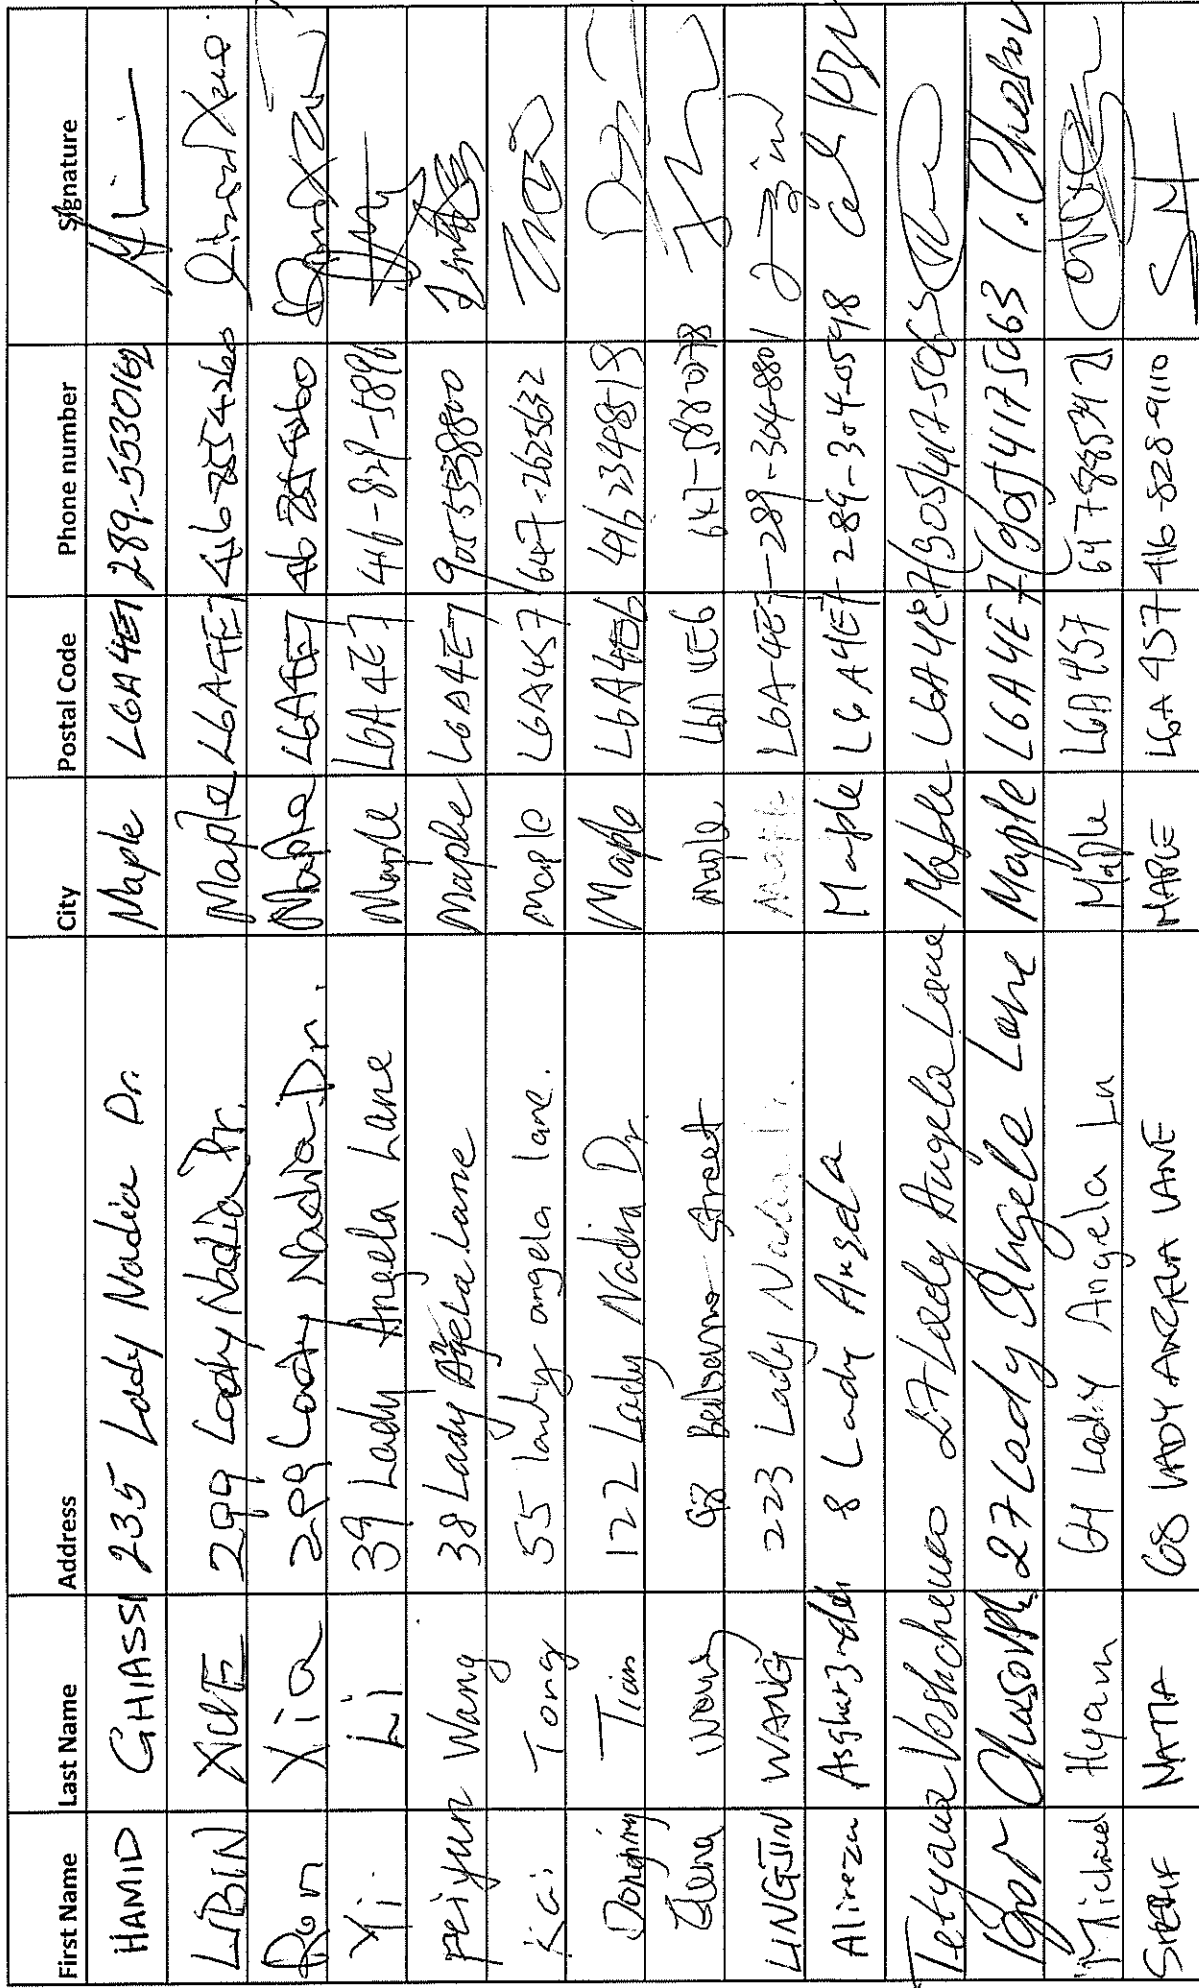 First Name Last Name Address City Postal Code Phone number Signature
HAMID GHIASSI 235 Lady Nadia Dr. Maple L6A 4E7 289-5530162
LIBIN XUE 299 Lady Nadia Dr. Maple L6A4E7
Ron Xia 299 Lady Nadia Dr. Maple L6A4E7
Yi Li 39 Lady Angela Lane Maple L6A 4E7 416-829-5896
Peiyun Wang 38 Lady Angela Lane Maple L6A4E7 9055538800
Kai Tong 55 lady angela lane. Maple L6A4S7 647-2625632
Tian 122 Lady Nadia Dr Maple L6A4E6 4162349819
Elena Wong Street Maple, L6A 4E6
LINGJIN WANG 223 Lady Nadia Dr. Maple L6A-4E7 289-304-8801
Alireza 8 Lady Angela Maple L6A4E7 289-304-0598
Tetyana 27 Lady Angela Lane Maple L6A4E7 (905)417-5063
Igor 27 Lady Angela Lane Maple L6A4E7 (905)4175063
Michael Hyam 64 Lady Angela Ln Maple L6A 4S7 6478885342
MATTA 68 LADY ANGELA LANE MAPLE L6A 4S7 416-828-9110 SM